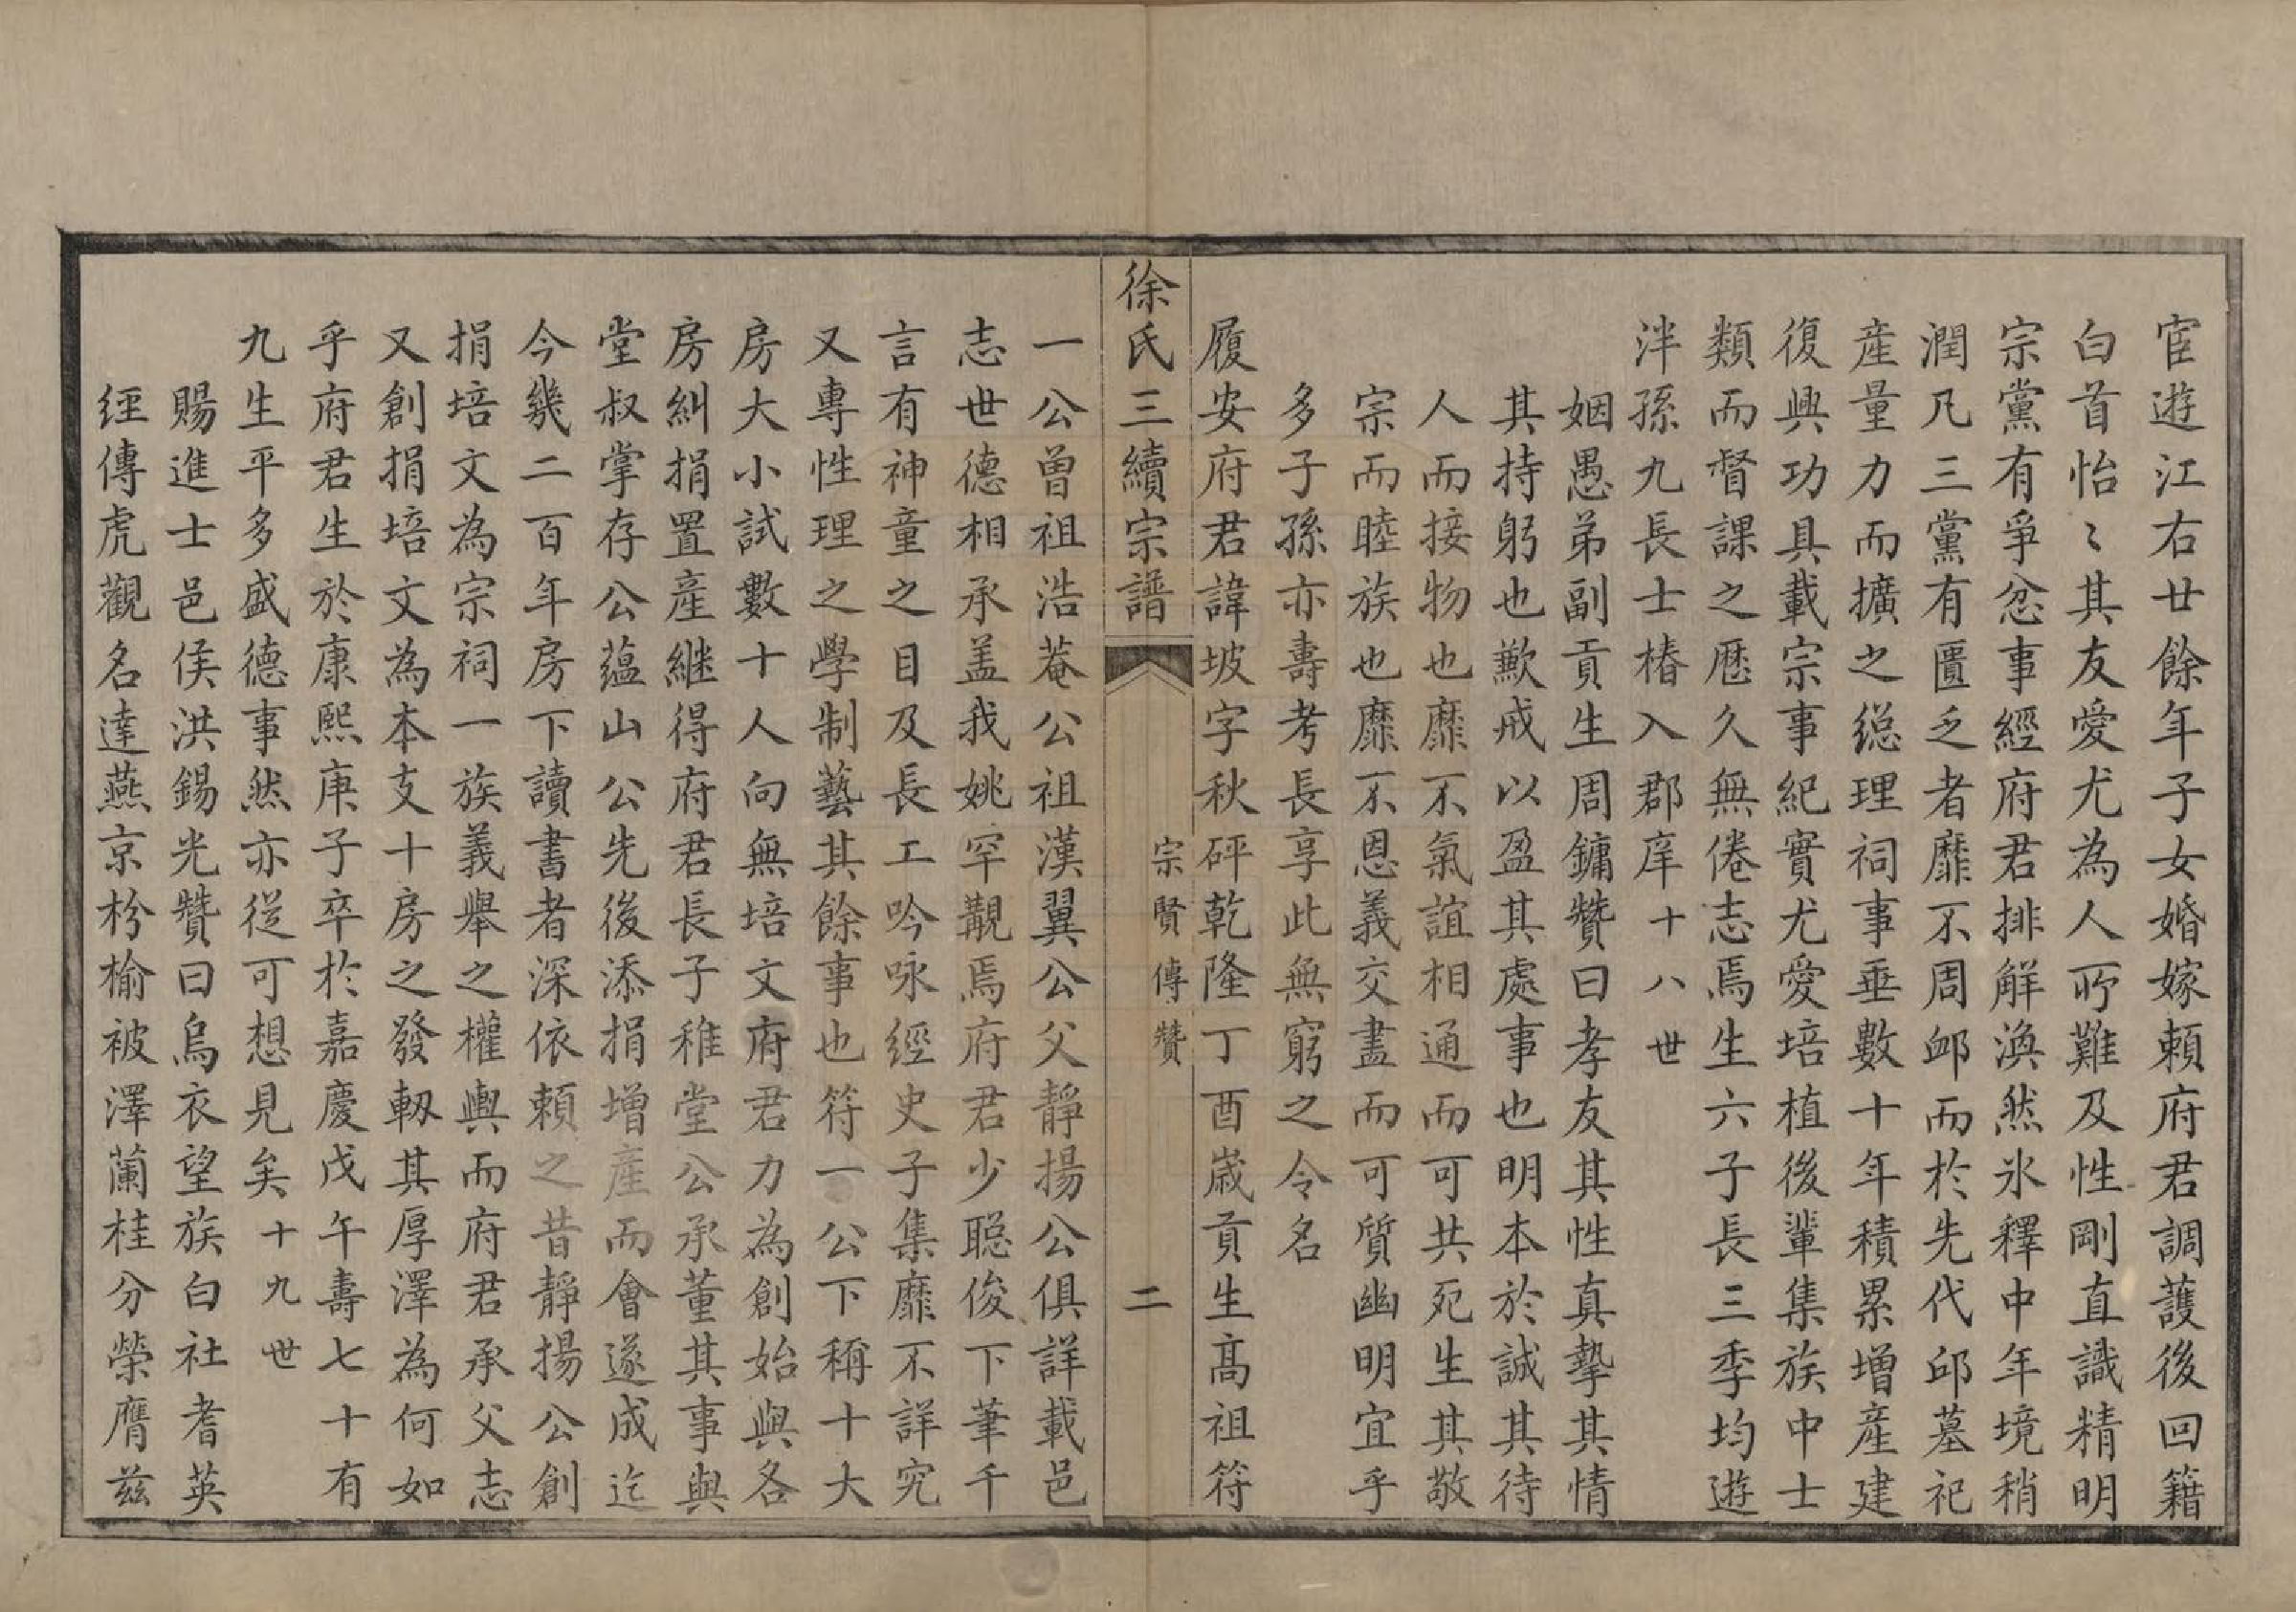 宦遊江右廿餘年子女婚嫁頼府君調護後回籍
白首怡〻其友愛尤為人所難及性剛直識精明
宗黨有爭忿事經府君排解渙然氷釋中年境稍
潤凡三黨有匱乏者靡不周卹而於先代邱墓祀
産量力而擴之總理祠事垂數十年積累增産建
復興功具載宗事紀實尤愛培植後輩集族中士
類而督課之歷久無倦志焉生六子長三季均遊
泮孫九長士椿入郡庠十八世
姻愚弟副貢生周鏞贊曰孝友其性真摯其情
其持躬也歉戒以盈其處事也明本於誠其待
人而接物也靡不氣誼相通而可共死生其敬
宗而睦族也靡不恩義交盡而可質幽明宜乎
多子孫亦壽考長享此無窮之令名
履安府君諱坡字秋砰乾隆丁酉歲貢生髙祖符
徐氏三續宗譜
宗賢傳贊
二
一公曾祖浩菴公祖漢翼公父靜揚公俱詳載邑
志世德相承盖我姚罕覯焉府君少聰俊下筆千
言有神童之目及長工吟咏經史子集靡不詳究
又專性理之學制藝其餘事也符一公下稱十大
房大小試數十人向無培文府君力為創始與各
房糾捐置産継得府君長子稚堂公承董其事與
堂叔掌存公蘊山公先後添捐增産而會遂成迄
今幾二百年房下讀書者深依頼之昔靜揚公創
捐培文為宗祠一族義舉之權輿而府君承父志
又創捐培文為本支十房之發軔其厚澤為何如
乎府君生於康熙庚子卒於嘉慶戊午壽七十有
九生平多盛德事然亦從可想見矣十九世
賜進士邑侯洪錫光贊曰烏衣望族白社耆英
經傳虎觀名達燕京枌榆被澤蘭桂分榮膺兹